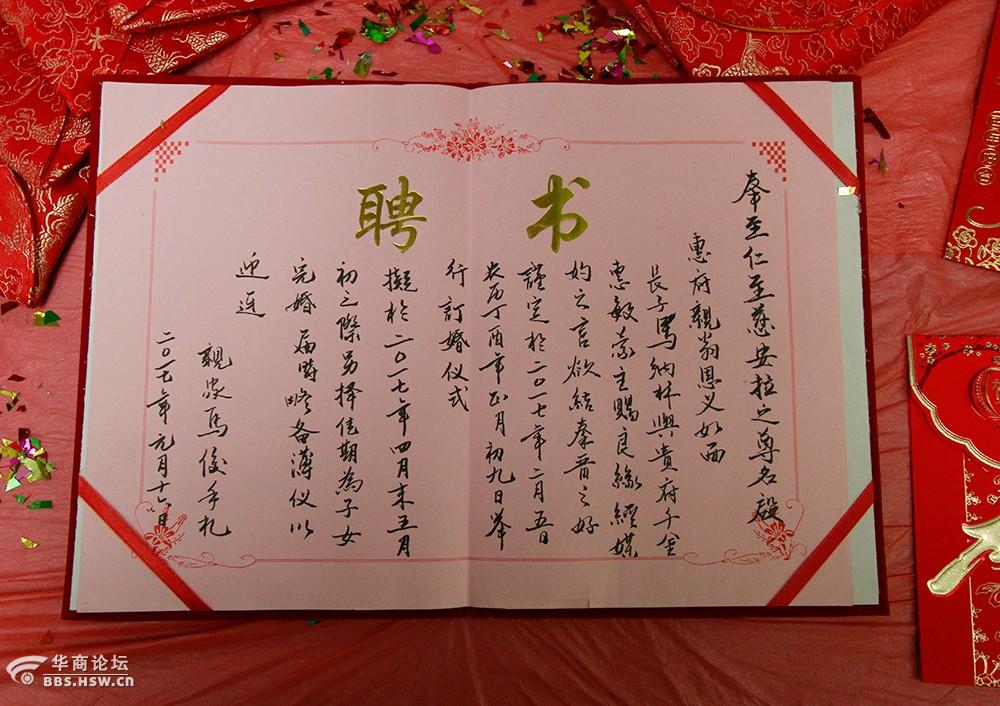 聘书
奉至仁至慈安拉之尊名
惠府親翁恩义如面
長子馬納林與貴府千金
惠敏蒙主賜良緣經媒
妁之言欲結秦晋之好
謹定於二〇一七年二月五日
农历丁酉年正月初九日举
行訂婚仪式
擬於二〇一七年四月末五月
初之際另择佳期為子女
完婚 届時略备薄仪以
迎迓
親家馬俊手札
二〇一七年元月十六日
华商论坛
BBS.HSW.CN